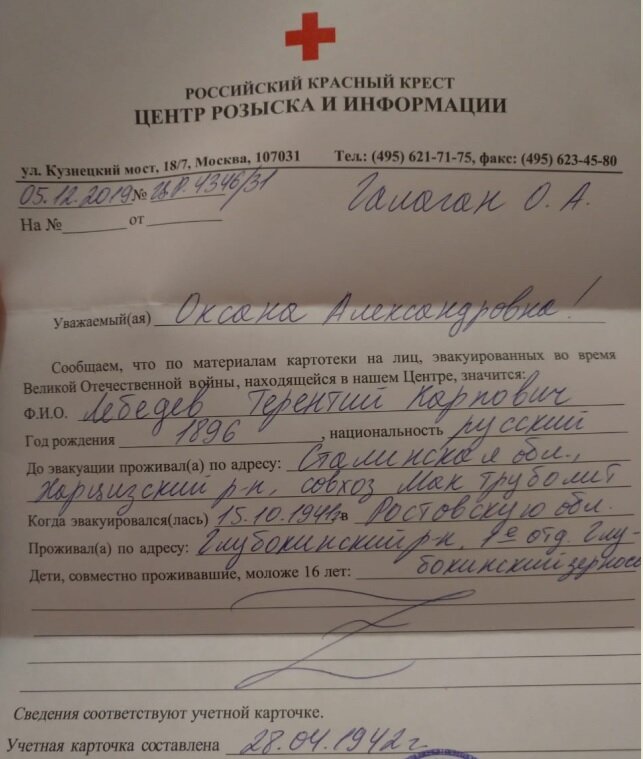 РОССИЙСКИЙ КРАСНЫЙ КРЕСТ
ЦЕНТР РОЗЫСКА И ИНФОРМАЦИИ
ул. Кузнецкий мост, 18/7, Москва, 107031 Тел.: (495) 621-71-75, факс: (495) 623-45-80
05.12.2019 № 4346/31 Галаган О. А.
На № от
Уважаемый(ая) Оксана Александровна!
Сообщаем, что по материалам картотеки на лиц, эвакуированных во время
Великой Отечественной войны, находящейся в нашем Центре, значится:
Ф.И.О. Лебедев Терентий Карпович
Год рождения 1896, национальность русский
До эвакуации проживал(а) по адресу: Сталинская обл.,
Харцизский р-н, совхоз Мак труболит
Когда эвакуировался(лась) 15.10.1941г в Ростовскую обл.
Проживал(а) по адресу: Глубокинский р-н, 1е отд. Глу-
Дети, совместно проживавшие, моложе 16 лет: бокинский зерносо
Сведения соответствуют учетной карточке.
Учетная карточка составлена 28.04.1942 г